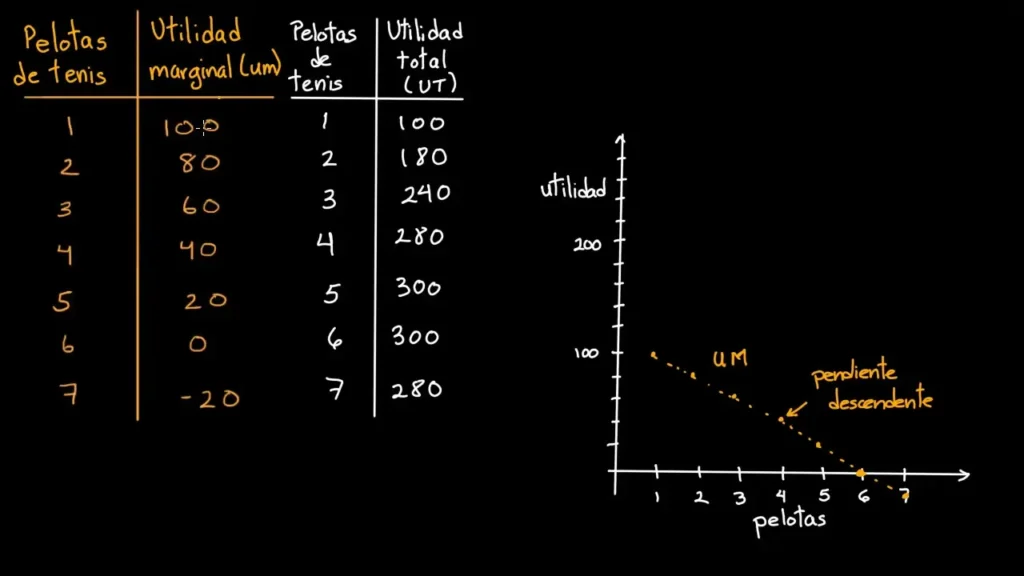 Pelotas de tenis | Utilidad marginal (um) | Pelotas de tenis | Utilidad total (UT)
1 | 100 | 1 | 100
2 | 80 | 2 | 180
3 | 60 | 3 | 240
4 | 40 | 4 | 280
5 | 20 | 5 | 300
6 | 0 | 6 | 300
7 | -20 | 7 | 280
utilidad
200
100
UM
pendiente
descendente
1 2 3 4 5 6 7
pelotas